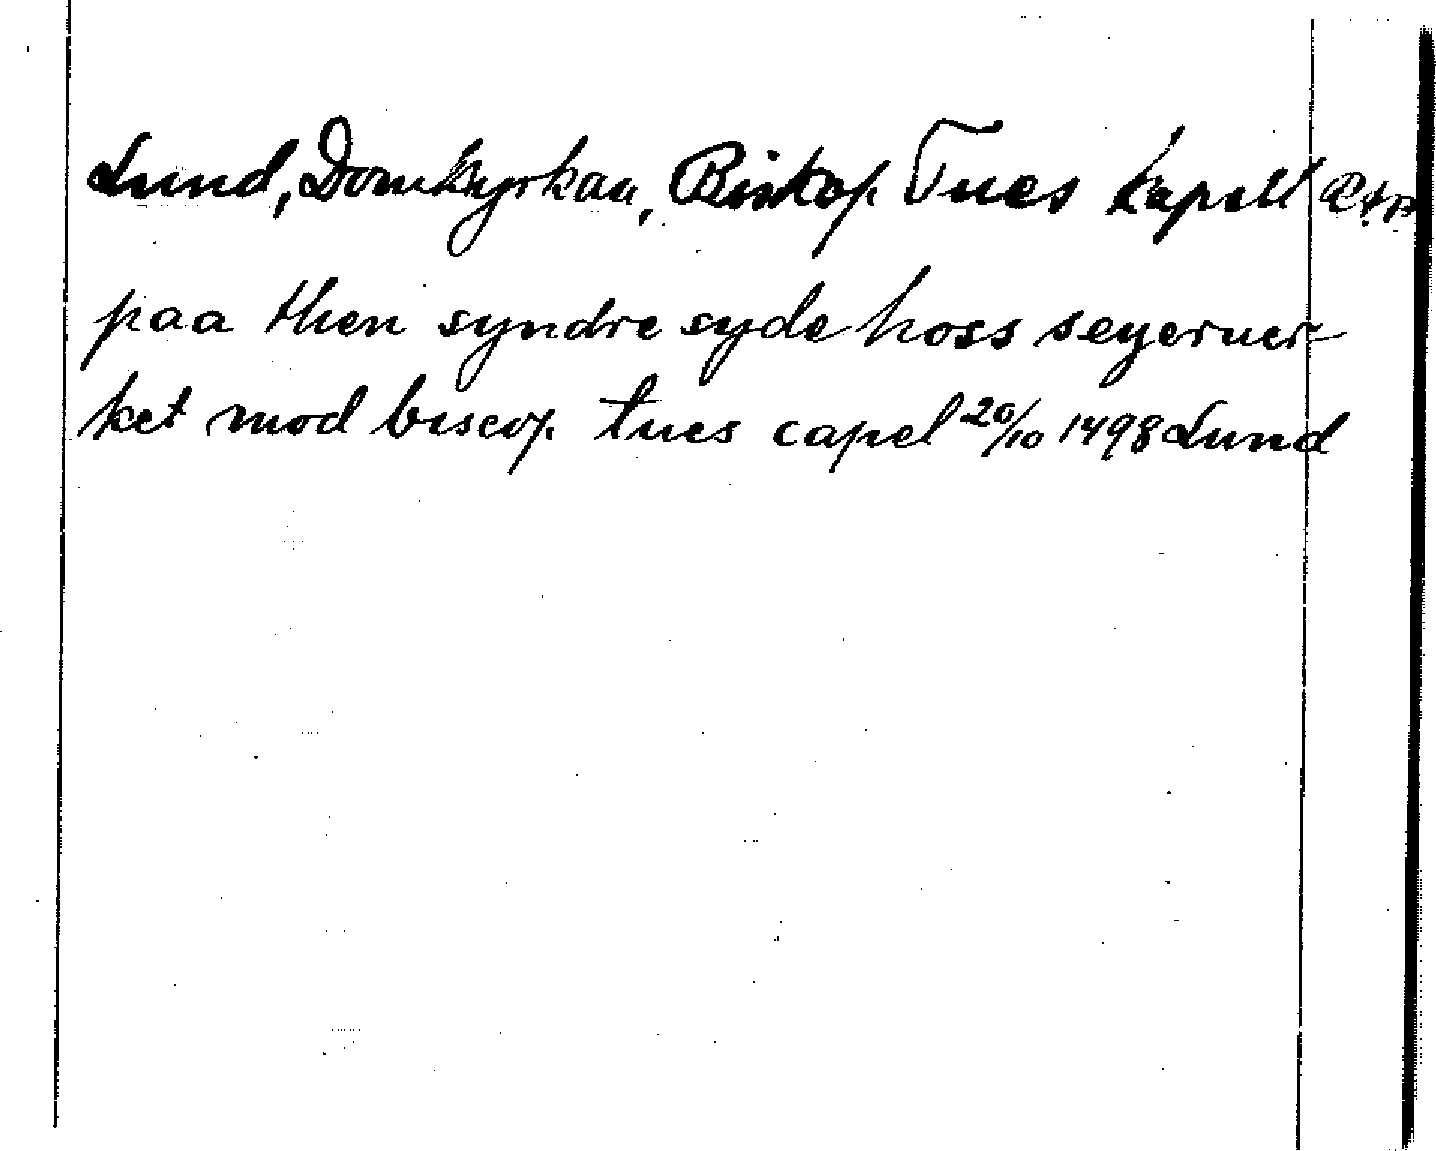 Lund, Domkyrkan, Biskop Tues kapell
paa then syndre syde hoss seyerver-
ket mod biscop tues capel 20/10 1498 Lund